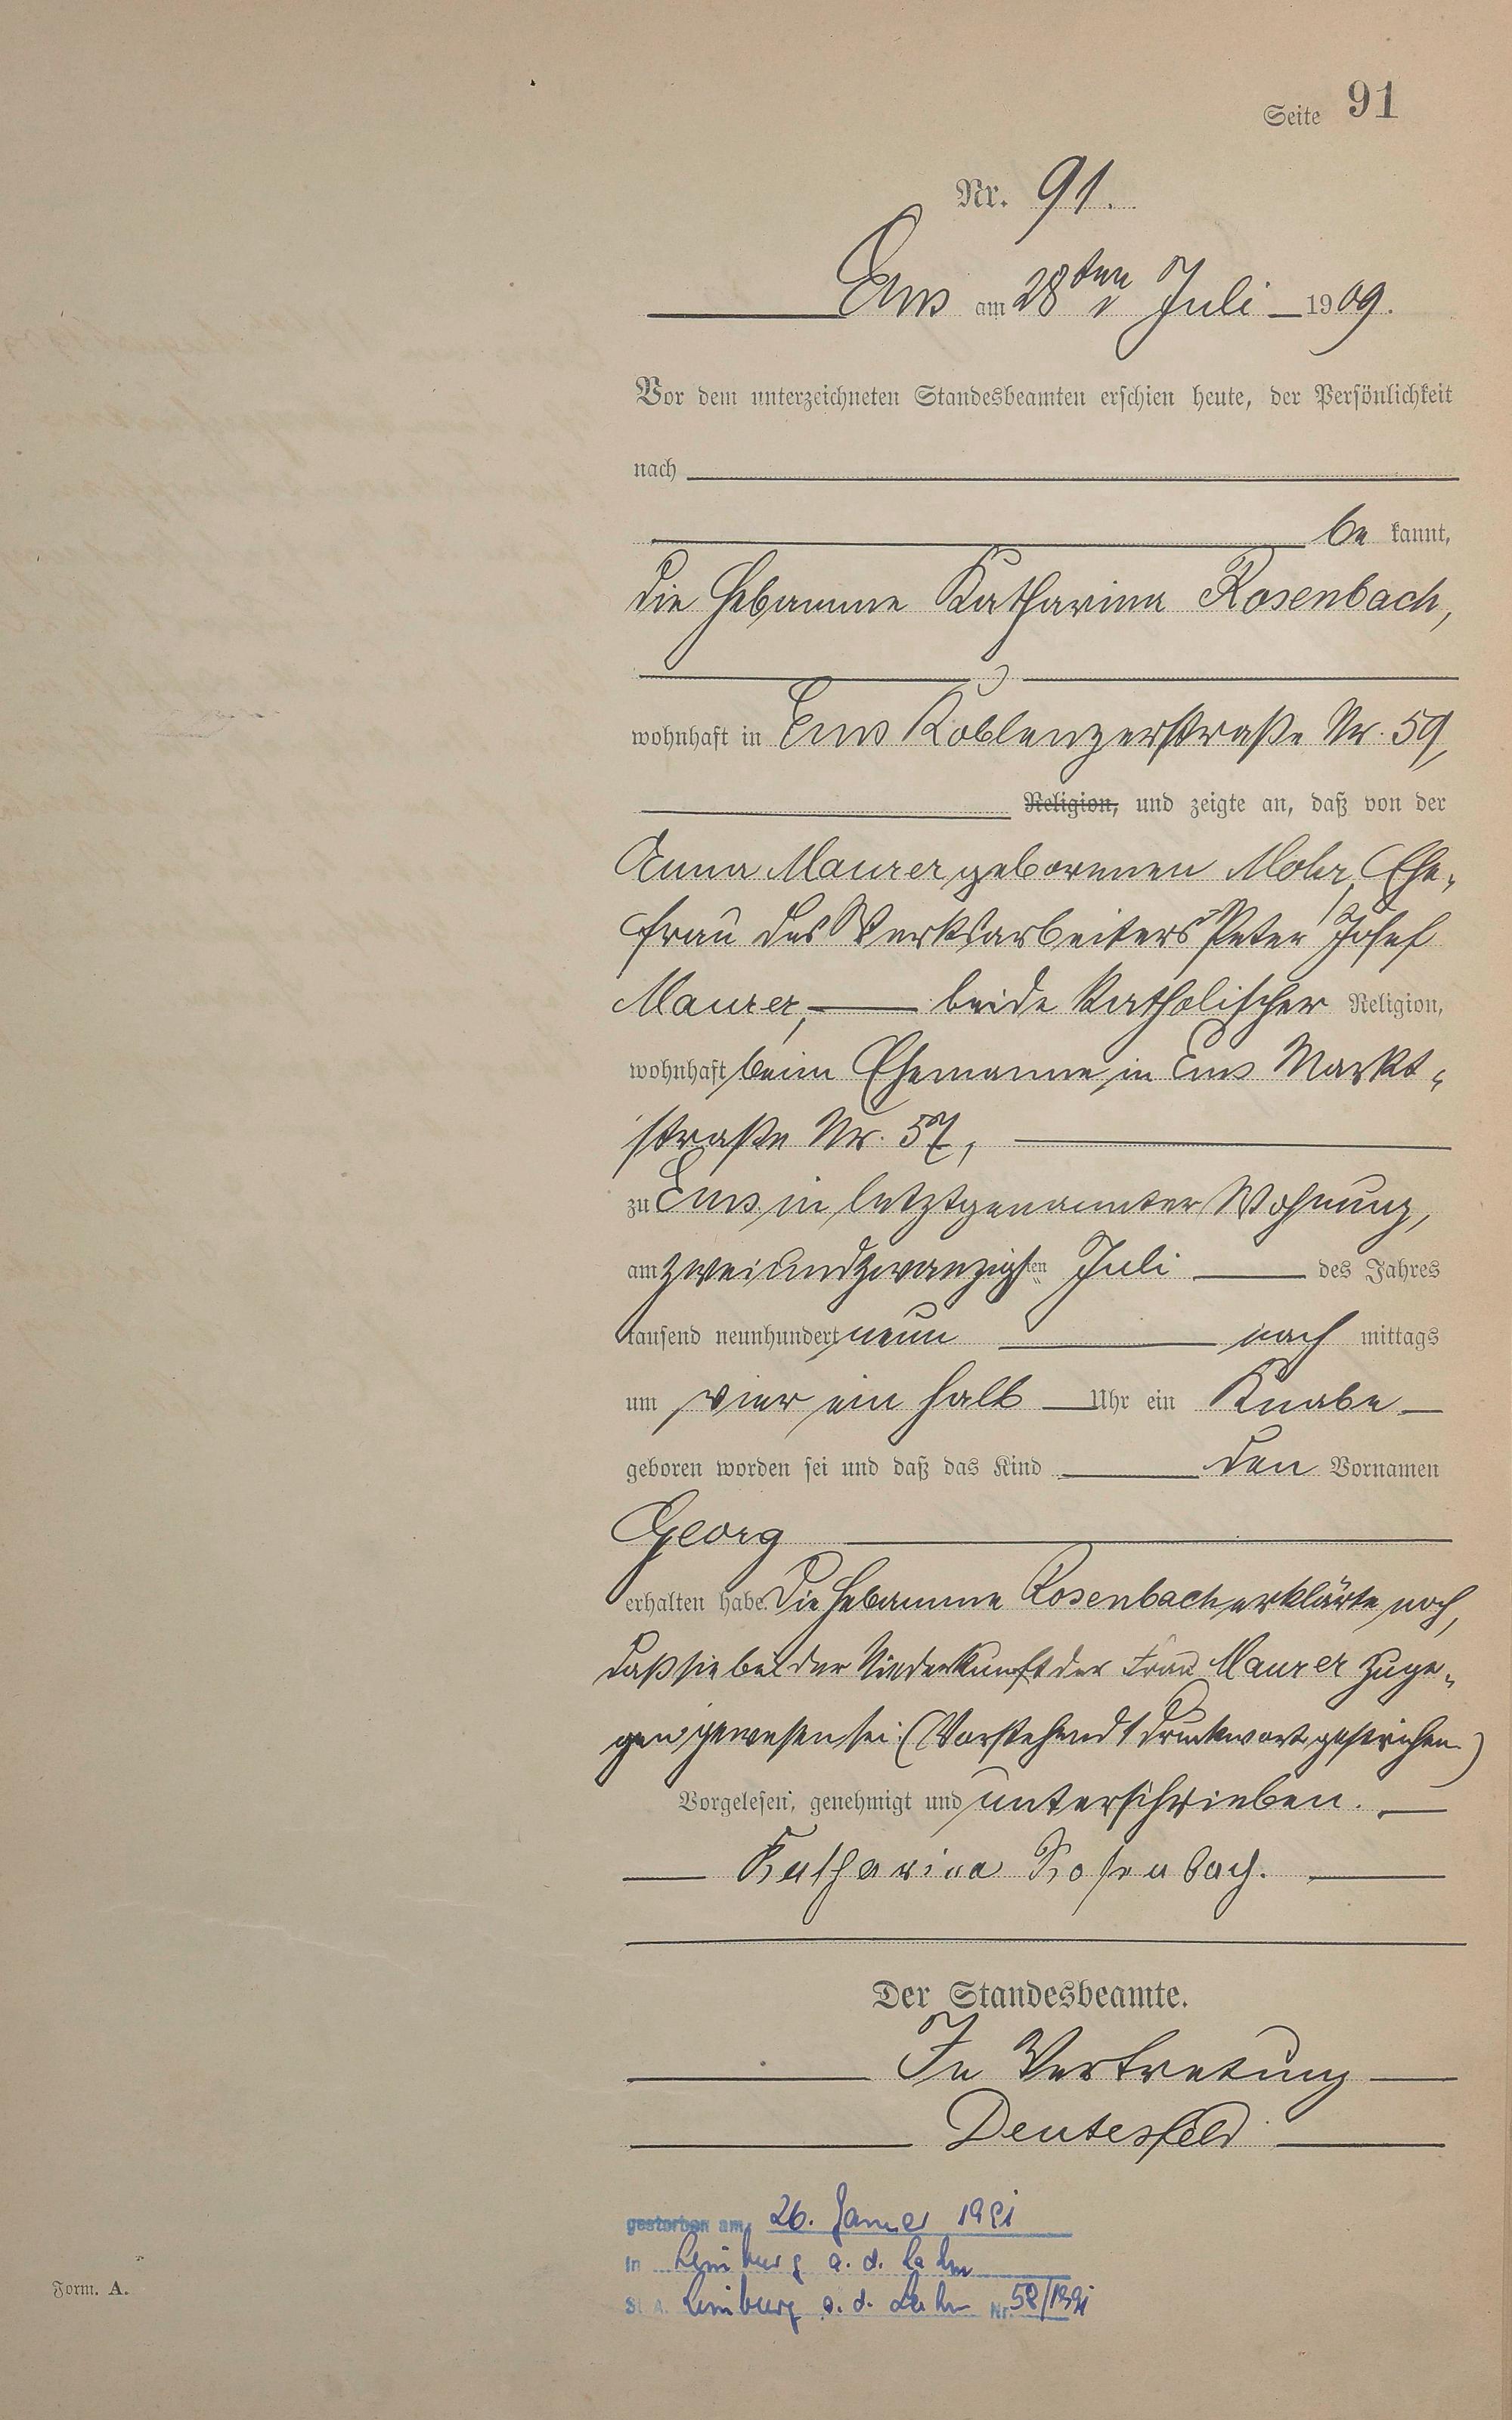 Seite 91
Nr. 91.
Ems am 28ten Juli 1909.
Vor dem unterzeichneten Standesbeamten erschien heute, der Persönlichkeit
nach
be kannt,
die Hebamme Katharina Rosenbach,
wohnhaft in Ems Koblenzerstraße Nr. 59,
Religion, und zeigte an, daß von der
Anna Maurer geborenen Mohr, Ehe-
frau des Werksarbeiters Peter Josef
Maurer, beide katholischer Religion,
wohnhaft beim Ehemanne in Ems Markt-
straße Nr. 57,
zu Ems in letztgenannter Wohnung,
am zweiundzwanzigsten Juli des Jahres
tausend neunhundert neun nach mittags
um vier ein halb Uhr ein Knabe
geboren worden sei und daß das Kind den Vornamen
Georg
erhalten habe. Die Hebamme Rosenbach erklärte noch,
daß sie bei der Niederkunft der Frau Maurer zuge-
gen gewesen sei. (Vorstehend 1 Druckwort gestrichen.)
Vorgelesen, genehmigt und unterschrieben.
Katharina Rosenbach.
Der Standesbeamte.
In Vertretung
Deutesfeld
gestorben am 26. Januar 1991
in Limburg a. d. Lahn
St. A. Limburg a. d. Lahn Nr. 58/1991
Form. A.